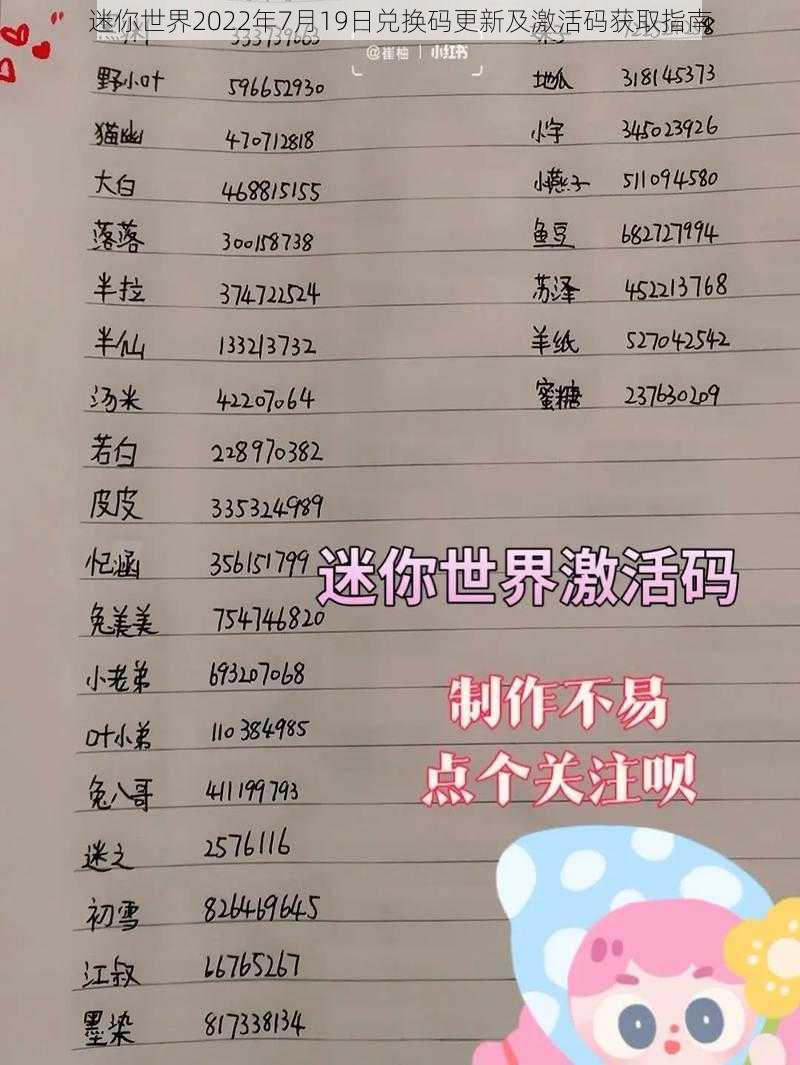 迷你世界2022年7月19日兑换码更新及激活码获取指南
333739663
@崔柚 | 小红书
野小叶 596652930
地瓜 318145373
猫幽 470712818
小字 345023926
大白 468815155
小燕子 511094580
落落 300158738
鱼豆 682727994
半拉 374722524
苏泽 452213768
半仙 133213732
羊纸 527042542
汤米 42207064
蜜糖 237630209
若白 228970382
皮皮 335324989
忆涵 356151799
迷你世界激活码
兔美美 754746820
小老弟 693207068
制作不易
叶小弟 110384985
点个关注呗
兔八哥 411199793
迷之 2576116
初雪 826469645
江叔 66765267
墨染 817338134